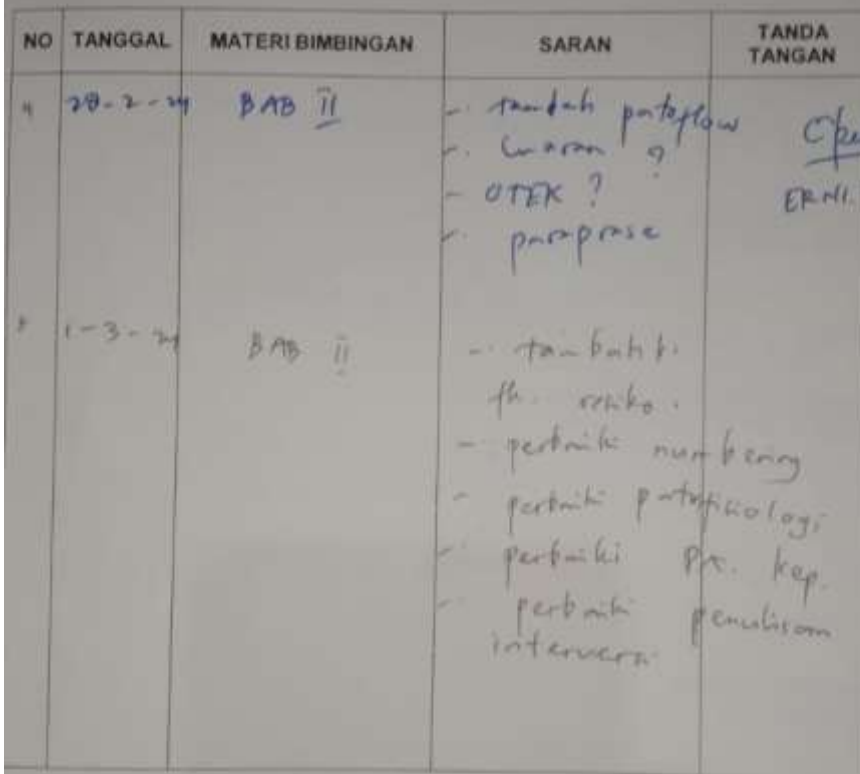 NO TANGGAL MATERI BIMBINGAN SARAN TANDA TANGAN
4 28-2-24 BAB II - tambah patoflow
- ?
- OTEK ?
- paraprase
ERNI.
1-3-24 BAB II - tambah
fk. resiko.
- perbaiki numbering
- perbaiki patofisiologi
- perbaiki Dx. kep.
- perbaiki penulisan
intervensi